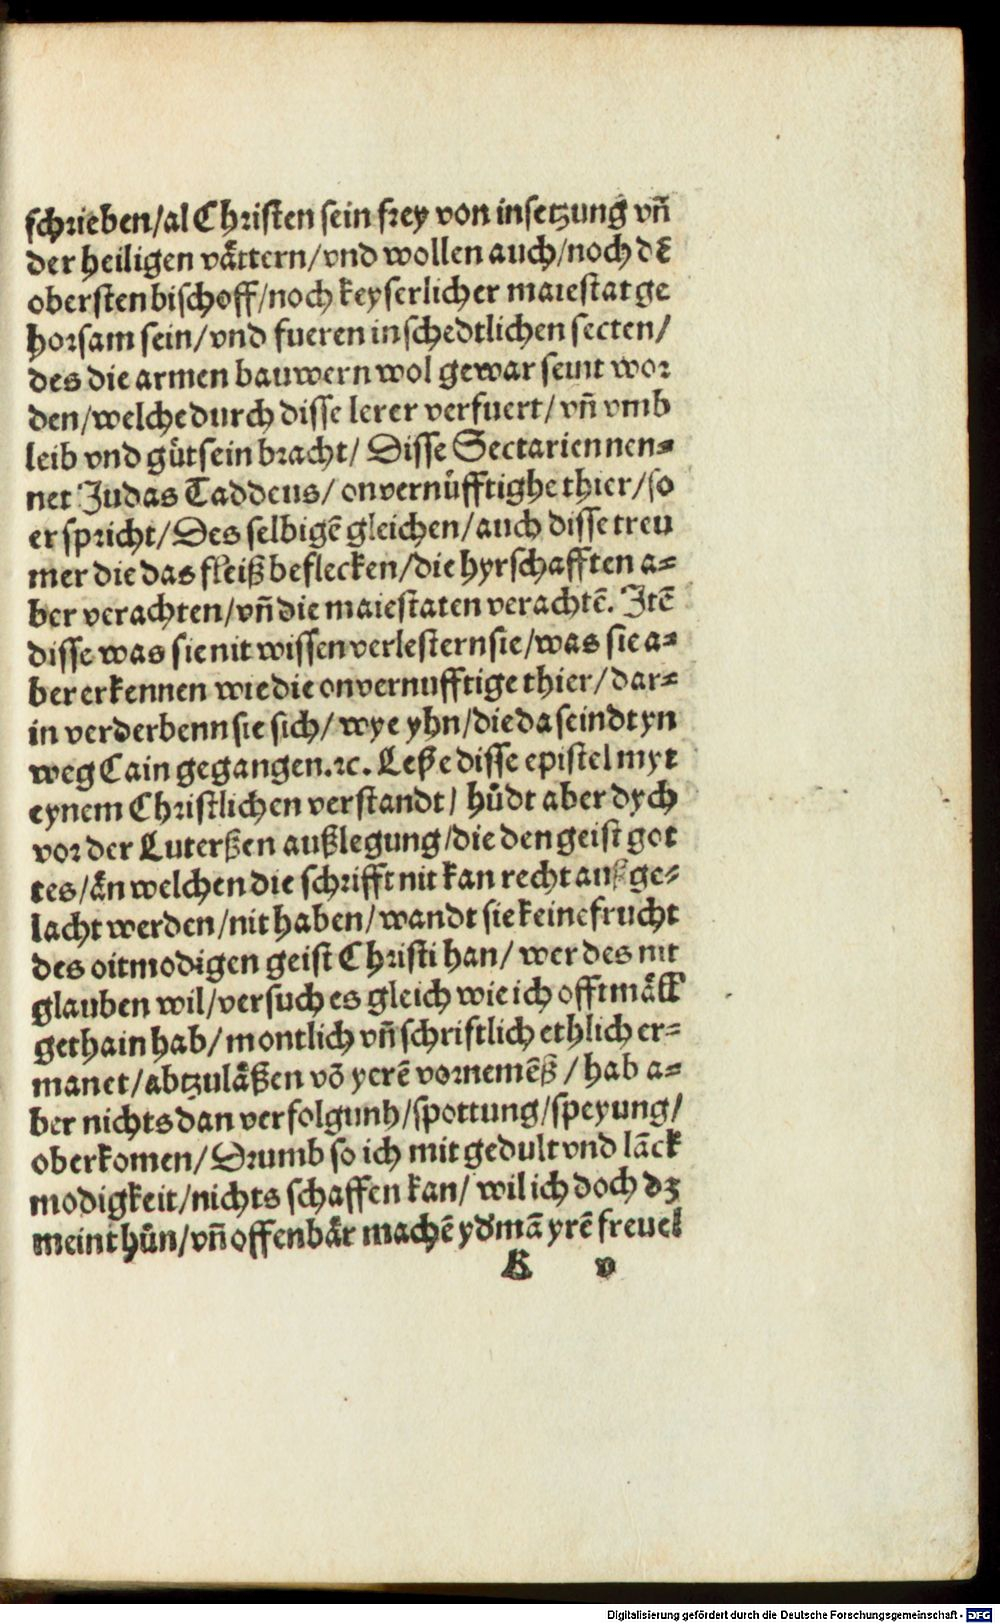 schrieben/al Christen sein frey von insetzung vñ
der heiligen vättern/vnd wollen auch/noch dẽ
obersten bischoff/noch keyserlicher maiestat ge
horsam sein/vnd fueren in schedtlichen secten/
des die armen bauwern wol gewar seint wor
den/welche durch disse lerer verfuert/vñ vmb
leib vnd gůt sein bracht/ Disse Sectarien nen-
net Judas Taddeus/ onvernůfftighe thier/so
er spricht/Des selbigẽ gleichen/auch disse treu
mer die das fleiß beflecken/die hyrschafften a-
ber verachten/vñ die maiestaten verachtẽ. Itẽ
disse was sie nit wissen verlestern sie/was sie a-
ber erkennen wie die onvernufftige thier/dar-
in verderbenn sie sich/ wye yhn/die da seindt yn
weg Cain gegangen.ꝛc. Leße disse epistel myt
eynem Christlichen verstandt/ hůdt aber dych
vor der Luterßen außlegung/die den geist got
tes/än welchen die schrifft nit kan recht auß ge-
lacht werden/nit haben/wandt sie keine frucht
des oitmodigen geist Christi han/ wer des nit
glauben wil/versuch es gleich wie ich offtmäll
gethain hab/montlich vñ schriftlich ethlich er-
manet/abtzuläßen võ yerẽ vornemẽß/ hab a-
ber nichts dan verfolgunh/spottung/speyung/
oberkomen/Drumb so ich mit gedult vnd läck
modigkeit/nichts schaffen kan/ wil ich doch dz
meint hůn/vñ offenbär machẽ ydmã yrẽ frevel
K v
Digitalisierung gefördert durch die Deutsche Forschungsgemeinschaft - DFG